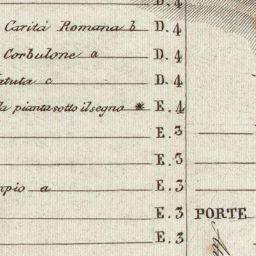 D.4
Carità Romana b D.4
Corbulone a D.4
c D.4
la pianta sotto il segno * E.4
E.3
E.3
a E.3
E.3 PORTE
E.3